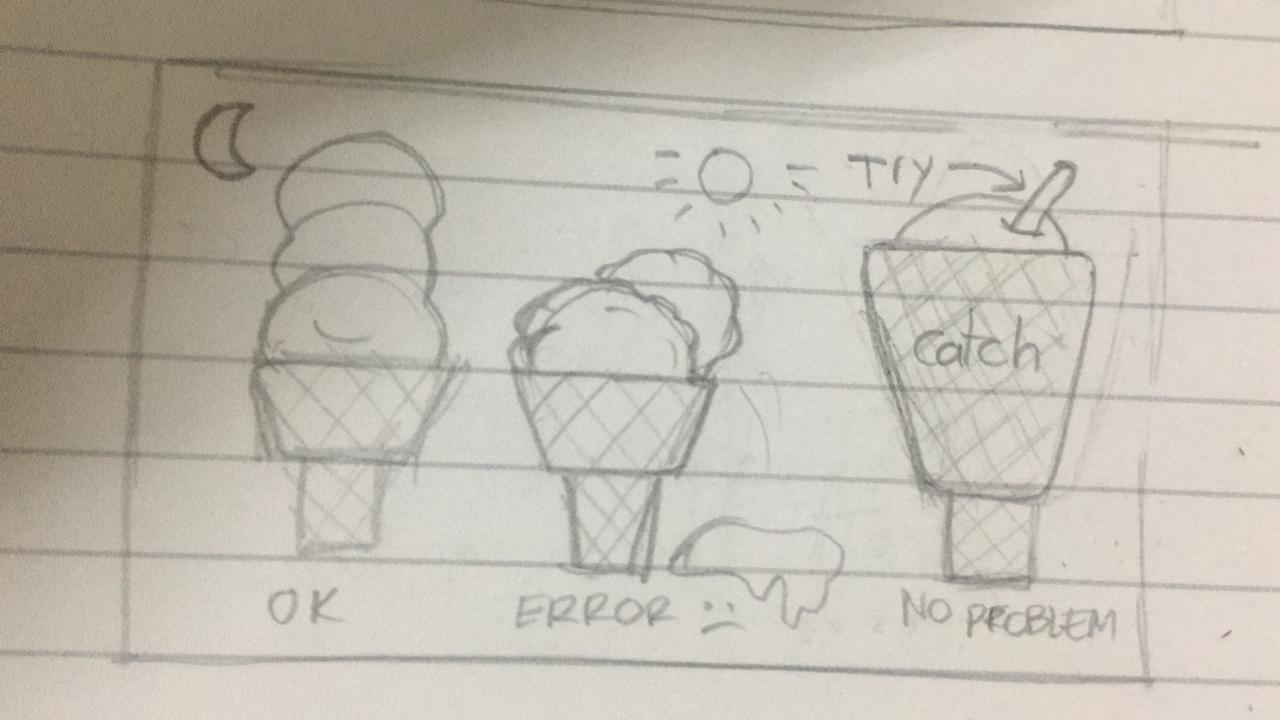 Try
catch
OK
ERROR :(
NO PROBLEM